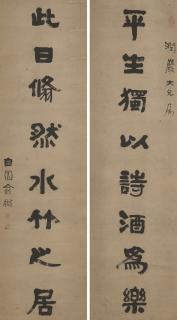 潤巖大兄屬
平生獨以詩酒爲樂
此日翛然水竹之居
俞樾